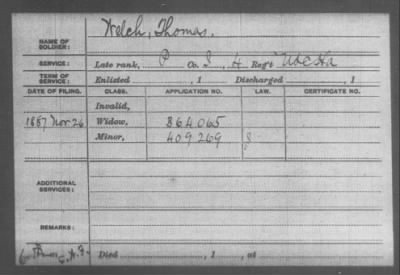 NAME OF SOLDIER: Welch, Thomas.
SERVICE: Late rank, P Co. I, H Reg't
TERM OF SERVICE: Enlisted , 1 Discharged , 1
DATE OF FILING. CLASS. APPLICATION NO. LAW. CERTIFICATE NO.
Invalid,
1887 Nov 26 Widow, 864065
Minor, 409269
ADDITIONAL SERVICES:
REMARKS:
Died , 1 , at